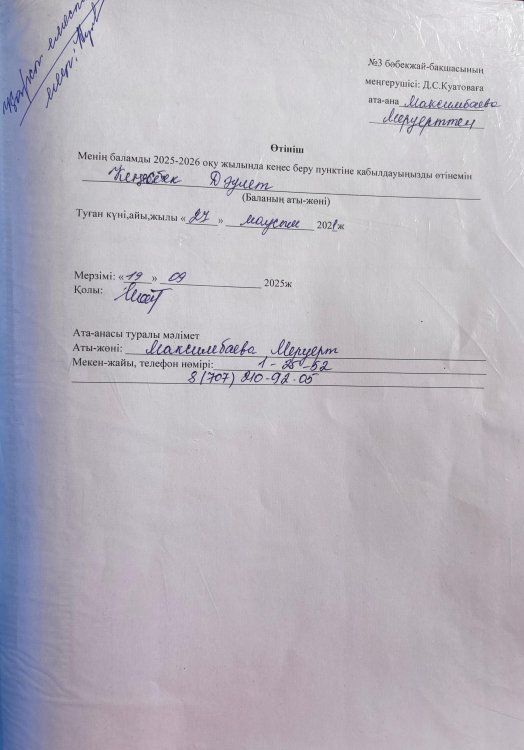 №3 бөбекжай-бақшасының
меңгерушісі: Д.С.Куатоваға
ата-ана Максимбаева
Меруерттен
Өтініш
Менің баламды 2025-2026 оқу жылында кеңес беру пунктіне қабылдауыңызды өтінемін
Кеңесбек Дәулет
(Баланың аты-жөні)
Туған күні,айы,жылы «27» маусым 2021ж
Мерзімі: «19» 09 2025ж
Қолы:
Ата-анасы туралы мәлімет
Аты-жөні: Максимбаева Меруерт
Мекен-жайы, телефон нөмірі: 1-25-52
8(707) 210-92-05